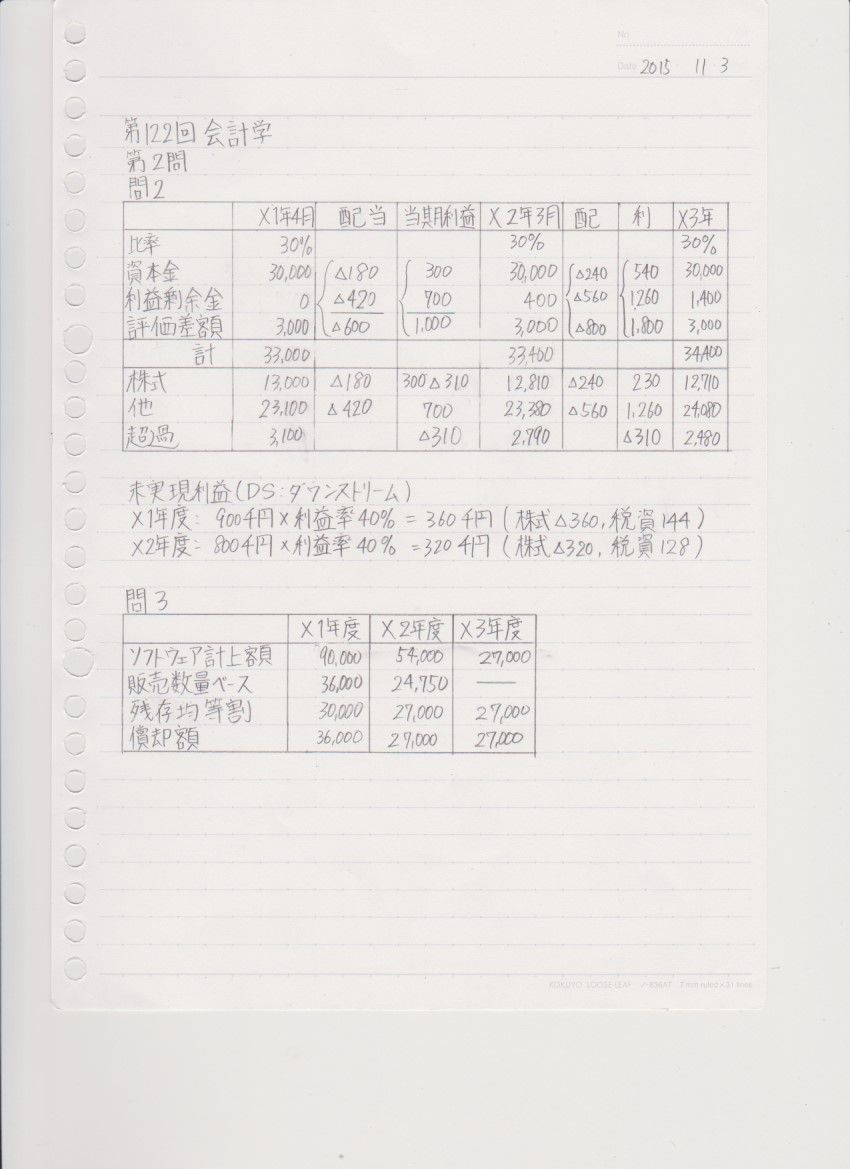 No.
Date 2015 11・3
第122回 会計学
第2問
問2
X1年4月 配当 当期利益 X2年3月 配 利 X3年
比率 30% 30% 30%
資本金 30,000 △180 300 30,000 △240 540 30,000
利益剰余金 0 △420 700 400 △560 1,260 1,400
評価差額 3,000 △600 1,000 3,000 △800 1,800 3,000
計 33,000 33,400 34,400
株式 13,000 △180 300△310 12,810 △240 230 12,710
他 23,100 △420 700 23,380 △560 1,260 24,080
超過 3,100 △310 2,790 △310 2,480
未実現利益(DS:ダウンストリーム)
X1年度: 900千円×利益率40% = 360千円 (株式△360, 税資144)
X2年度: 800千円×利益率40% = 320千円 (株式△320, 税資128)
問3
X1年度 X2年度 X3年度
ソフトウェア計上額 90,000 54,000 27,000
販売数量ベース 36,000 24,750 ―
残存均等割 30,000 27,000 27,000
償却額 36,000 27,000 27,000
KOKUYO LOOSE-LEAF ノ-836AT 7 mm ruled×31 lines